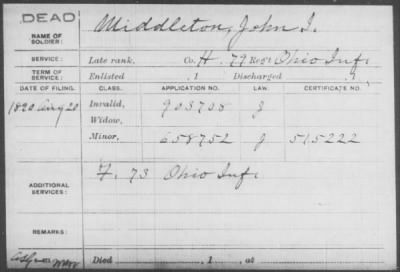 DEAD
NAME OF SOLDIER: Middleton, John I.
SERVICE: Late rank, Co. H. 79 Reg't Ohio Inf.
TERM OF SERVICE: Enlisted , 1 Discharged , 1
DATE OF FILING. CLASS. APPLICATION NO. LAW. CERTIFICATE NO.
1890 Aug 20 Invalid, 903708 J
Widow,
Minor, 658752 J 515222
ADDITIONAL SERVICES: F. 73 Ohio Inf.
REMARKS:
Died , 1 , at